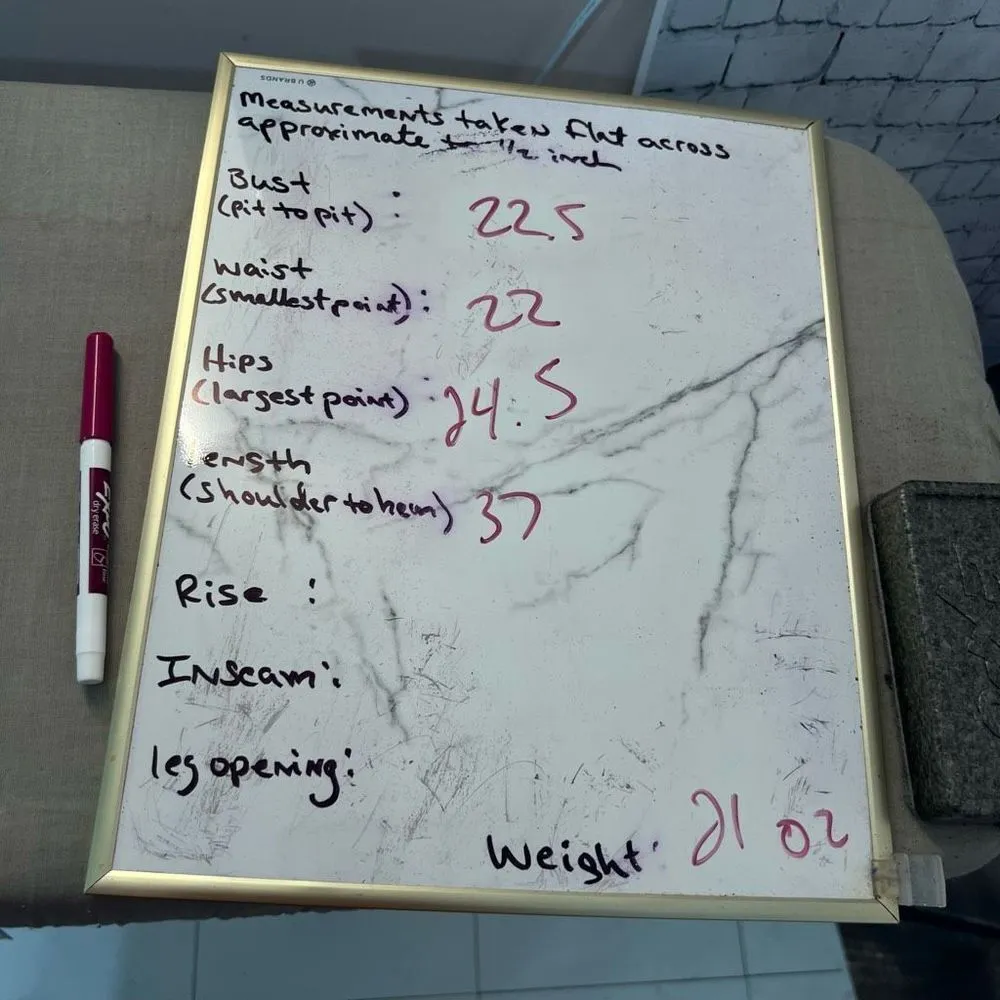 U BRANDS
Measurements taken flat across
approximate to 1/2 inch
Bust
(pit to pit) : 22.5
waist
(smallest point): 22
Hips
(largest point) : 24.5
ength
(shoulder to hem) 37
Rise :
Inseam:
leg opening:
Weight: 21 oz
EXPO
dry erase